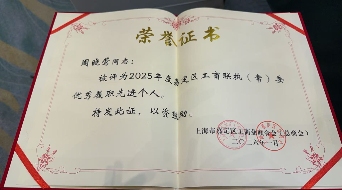 荣誉证书
同志：
被评为2025年度嘉定区工商联执（常）委
优秀履职先进个人。
特发此证，以资鼓励。
上海市嘉定区工商业联合会（总商会）
二〇二六年一月